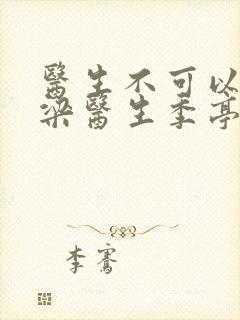 醫生不可以
梁醫生季亭
李騫